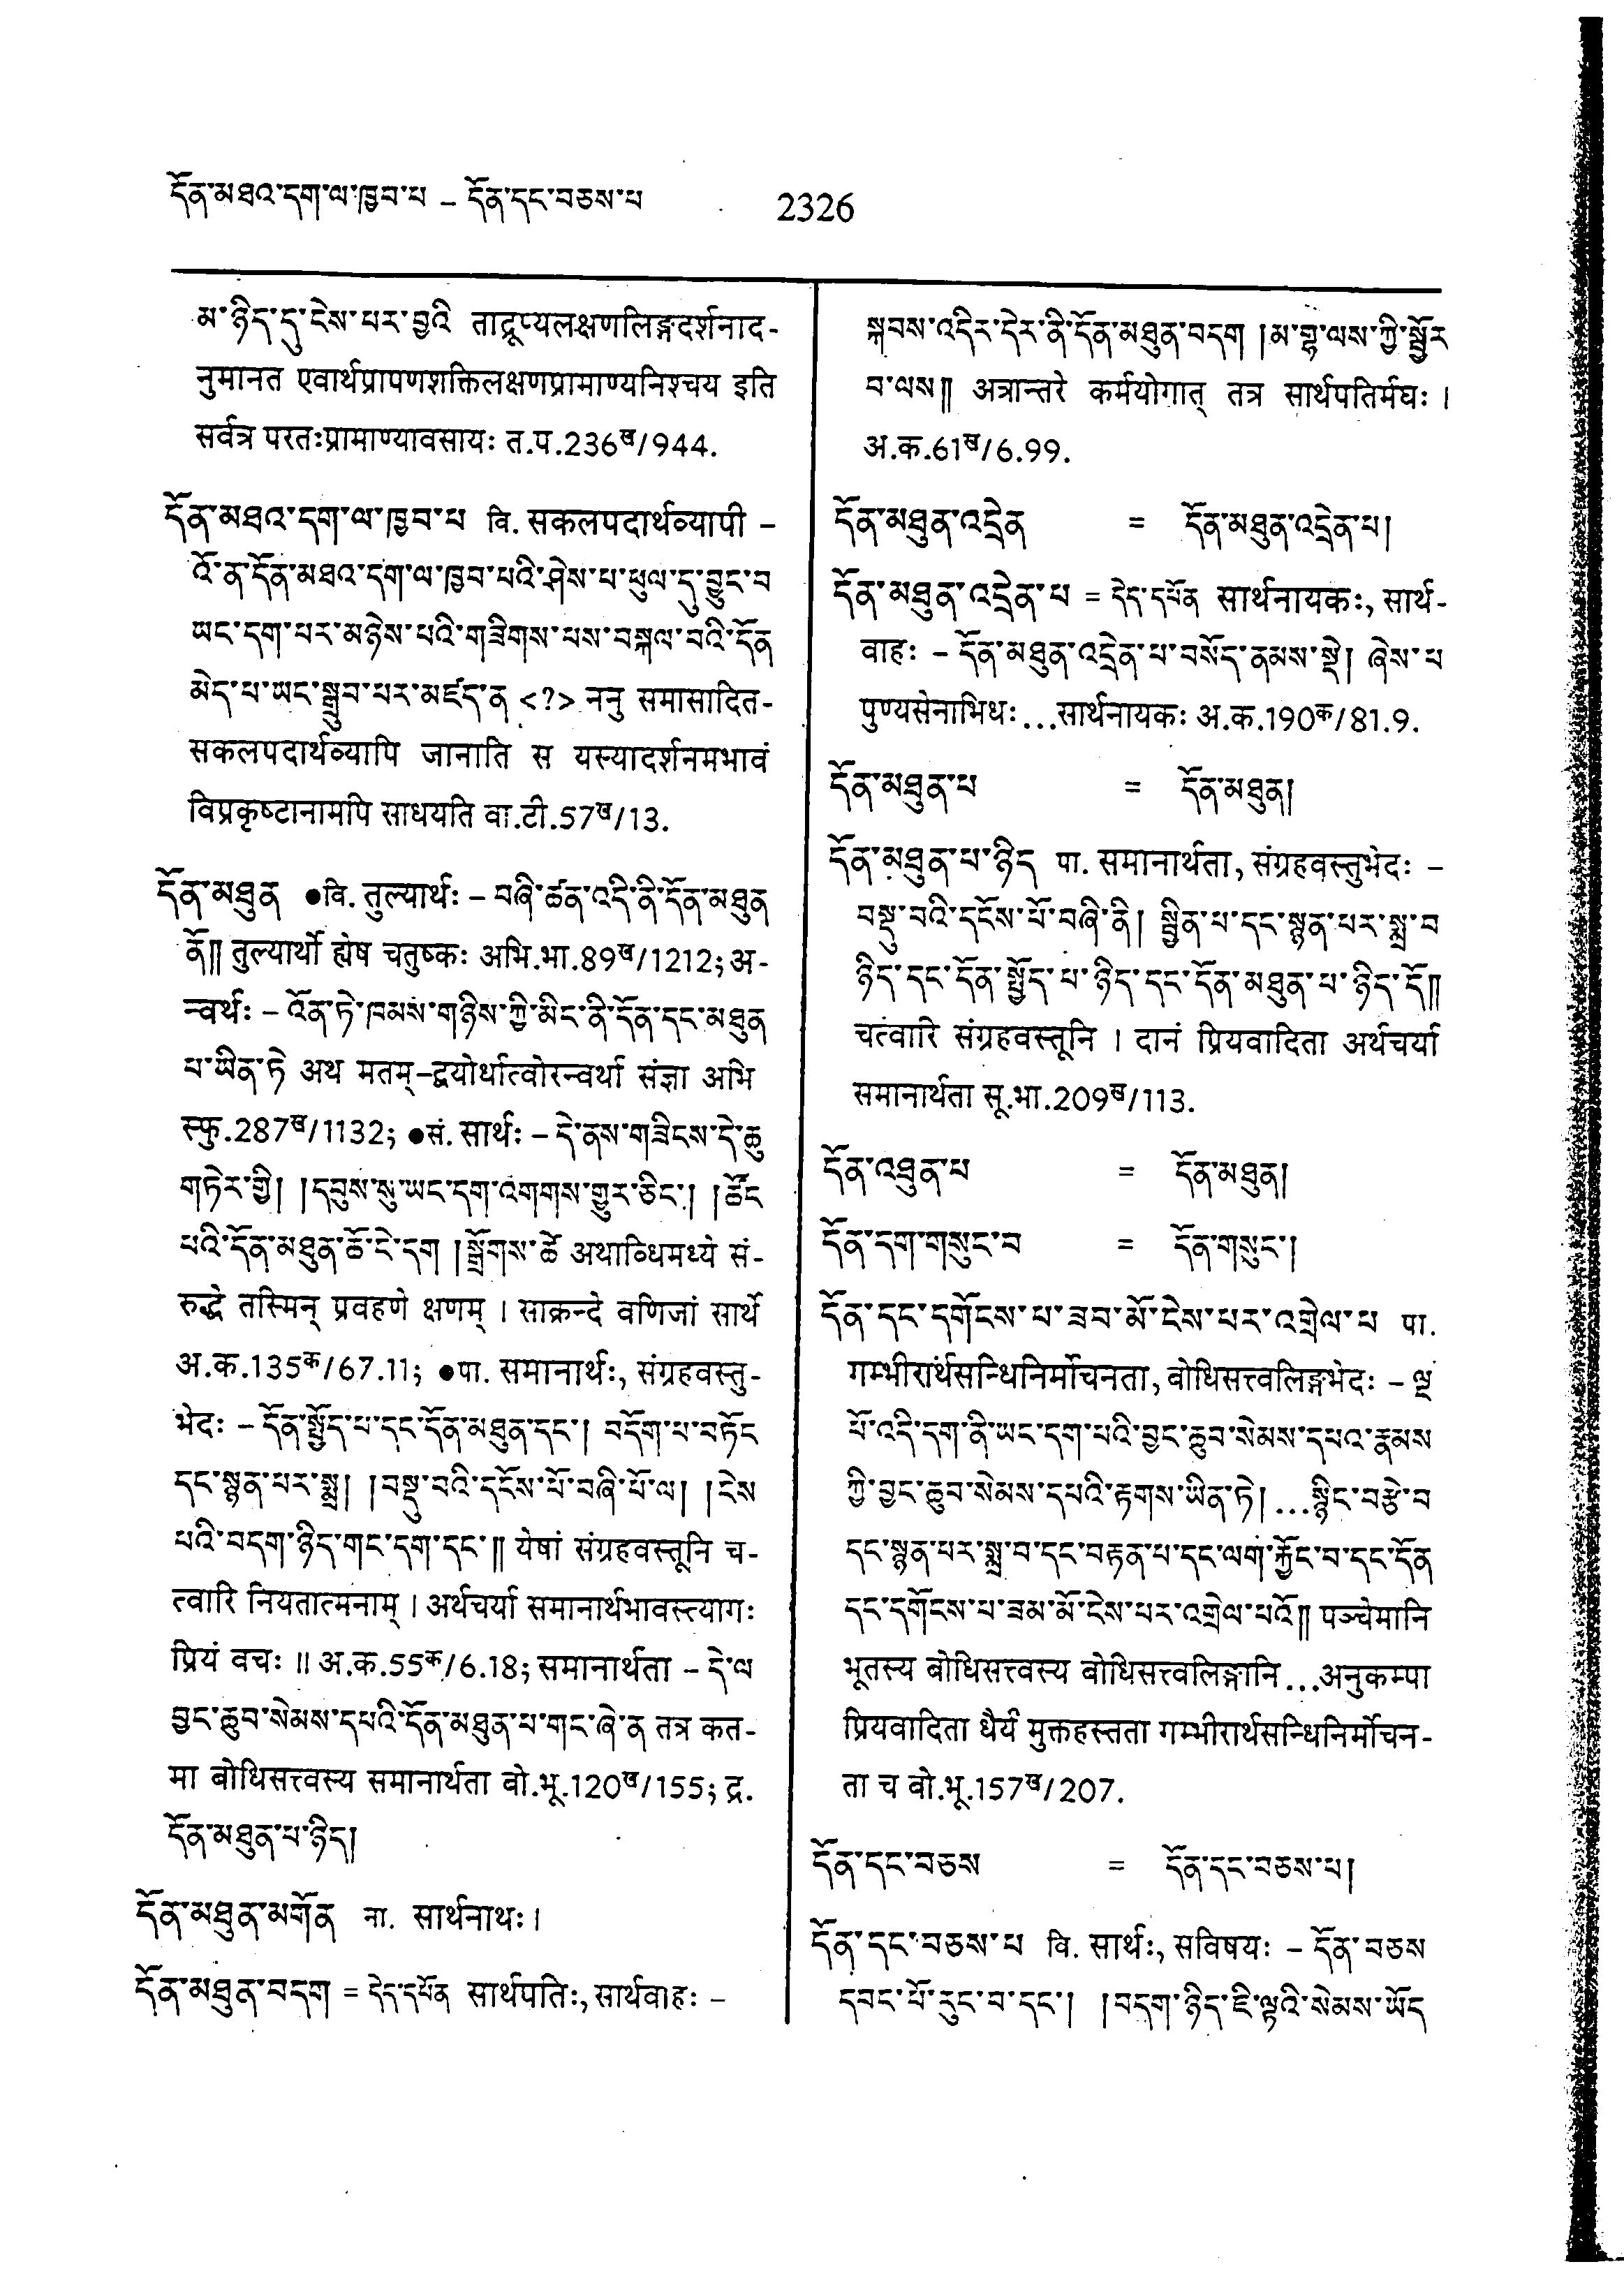 དོན་མཐའ་དག་ལ་ཁྱབ་པ – དོན་དང་བཅས་པ 2326
མ་ཉིད་དུ་ངེས་པར་བྱའི ताद्रूप्यलक्षणलिङ्गदर्शनाद-
नुमानत एवार्थप्रापणशक्तिलक्षणप्रामाण्यनिश्चय इति
सर्वत्र परतःप्रामाण्यावसायः त.प.236ख/944.
དོན་མཐའ་དག་ལ་ཁྱབ་པ वि. सकलपदार्थव्यापी –
འོ་ན་དོན་མཐའ་དག་ལ་ཁྱབ་པའི་ཤེས་པ་ཕུལ་དུ་བྱུང་བ
ཡང་དག་པར་མཉེས་པའི་གཟིགས་པས་བསྐལ་བའི་དོན
མེད་པ་ཡང་སྒྲུབ་པར་མཛད་ན <?> ननु समासादित-
सकलपदार्थव्यापि जानाति स यस्यादर्शनमभावं
विप्रकृष्टानामपि साधयति वा.टी.57ख/13.
དོན་མཐུན ●वि. तुल्यार्थः – བཞི་ཚན་འདི་ནི་དོན་མཐུན
ནོ༎ तुल्यार्थो ह्येष चतुष्कः अभि.भा.89ख/1212; अ-
न्वर्थः – འོན་ཏེ་ཁམས་གཉིས་ཀྱི་མིང་ནི་དོན་དང་མཐུན
པ་ཡིན་ཏེ अथ मतम्–द्वयोर्धात्वोरन्वर्था संज्ञा अभि
स्फु.287ख/1132; ●सं. सार्थः – དེ་ནས་གཟིངས་དེ་ཆུ
གཏེར་གྱི། །དབུས་སུ་ཡང་དག་འགགས་གྱུར་ཅིང་། །ཚོང
པའི་དོན་མཐུན་ཆོ་ངེ་དག །སྒྲོགས་ཚེ अथाब्धिमध्ये सं-
रुद्धे तस्मिन् प्रवहणे क्षणम् । साक्रन्दे वणिजां सार्थे
अ.क.135क/67.11; ●पा. समानार्थः, संग्रहवस्तु-
भेदः – དོན་སྤྱོད་པ་དང་དོན་མཐུན་དང་། བདོག་པ་བཏོང
དང་སྙན་པར་སྨྲ། །བསྡུ་བའི་དངོས་པོ་བཞི་པོ་ལ། །ངེས
པའི་བདག་ཉིད་གང་དག་དང་༎ येषां संग्रहवस्तूनि च-
त्वारि नियतात्मनाम् । अर्थचर्या समानार्थभावस्त्यागः
प्रियं वचः ॥ अ.क.55क/6.18; समानार्थता – དེ་ལ
བྱང་ཆུབ་སེམས་དཔའི་དོན་མཐུན་པ་གང་ཞེ་ན तत्र कत-
मा बोधिसत्त्वस्य समानार्थता बो.भू.120ख/155; द्र.
དོན་མཐུན་པ་ཉིད།
དོན་མཐུན་མགོན ना. सार्थनाथः।
དོན་མཐུན་བདག = དེད་དཔོན सार्थपतिः, सार्थवाहः –
སྐབས་འདིར་དེར་ནི་དོན་མཐུན་བདག །མ་གྷ་ལས་ཀྱི་སྦྱོར
བ་ལས༎ अत्रान्तरे कर्मयोगात् तत्र सार्थपतिर्मघः ।
अ.क.61ख/6.99.
དོན་མཐུན་འདྲེན = དོན་མཐུན་འདྲེན་པ།
དོན་མཐུན་འདྲེན་པ = དེད་དཔོན सार्थनायकः, सार्थ-
वाहः – དོན་མཐུན་འདྲེན་པ་བསོད་ནམས་སྡེ། ཞེས་པ
पुण्यसेनाभिधः...सार्थनायकः अ.क.190क/81.9.
དོན་མཐུན་པ = དོན་མཐུན།
དོན་མཐུན་པ་ཉིད पा. समानार्थता, संग्रहवस्तुभेदः –
བསྡུ་བའི་དངོས་པོ་བཞི་ནི། སྦྱིན་པ་དང་སྙན་པར་སྨྲ་བ
ཉིད་དང་དོན་སྤྱོད་པ་ཉིད་དང་དོན་མཐུན་པ་ཉིད་དོ༎
चत्वारि संग्रहवस्तूनि । दानं प्रियवादिता अर्थचर्या
समानार्थता सू.भा.209ख/113.
དོན་འཐུན་པ = དོན་མཐུན།
དོན་དག་གསུང་བ = དོན་གསུང་།
དོན་དང་དགོངས་པ་ཟབ་མོ་ངེས་པར་འགྲེལ་པ पा.
गम्भीरार्थसन्धिनिर्मोचनता, बोधिसत्त्वलिङ्गभेदः – ལྔ
པོ་འདི་དག་ནི་ཡང་དག་པའི་བྱང་ཆུབ་སེམས་དཔའ་རྣམས
ཀྱི་བྱང་ཆུབ་སེམས་དཔའི་རྟགས་ཡིན་ཏེ། ...སྙིང་བརྩེ་བ
དང་སྙན་པར་སྨྲ་བ་དང་བརྟན་པ་དང་ལག་རྐྱོང་བ་དང་དོན
དང་དགོངས་པ་ཟམ་མོ་ངེས་པར་འགྲེལ་པའོ༎ पञ्चेमानि
भूतस्य बोधिसत्त्वस्य बोधिसत्त्वलिङ्गानि...अनुकम्पा
प्रियवादिता धैर्यं मुक्तहस्तता गम्भीरार्थसन्धिनिर्मोचन-
ता च बो.भू.157ख/207.
དོན་དང་བཅས = དོན་དང་བཅས་པ།
དོན་དང་བཅས་པ वि. सार्थः, सविषयः – དོན་བཅས
དབང་པོ་རུང་བ་དང་། །བདག་ཉིད་ཇི་ལྟའི་སེམས་ཡོད